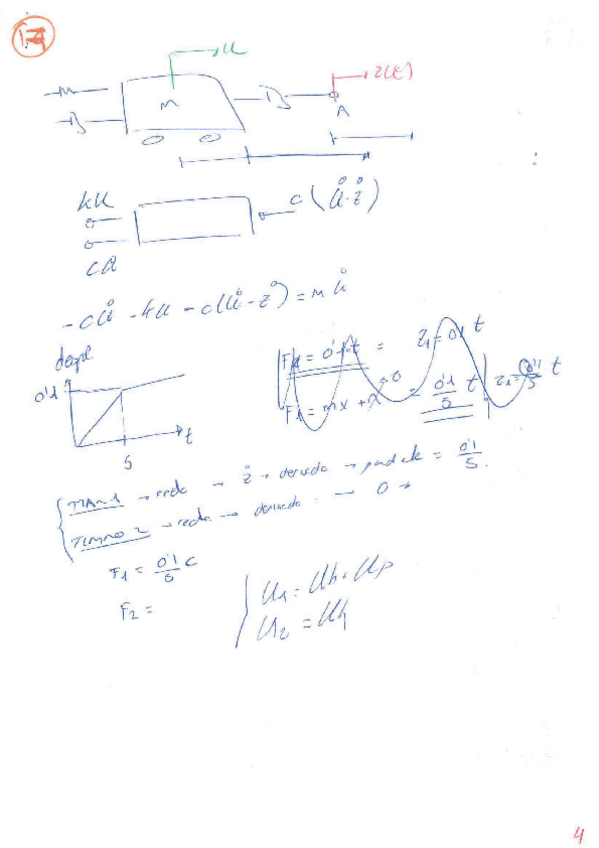 17
u
z(t)
M
A
ku
c(u̇-ż)
cu̇
-cu̇ -ku -c(u̇-ż) = m ü
despl
0'1
t
5
F1 = 0'1·t = z1 = 0'1 t
F1 = mx + n = 0'1/5 t z1 = 0'1/5 t
TRAMO 1 → recta → ż → derivada → pendiente = 0'1/5.
TRAMO 2 → recta → derivada → 0
F1 = 0'1/5 c
F2 =
u1 = uh + up
u2 = uh
4